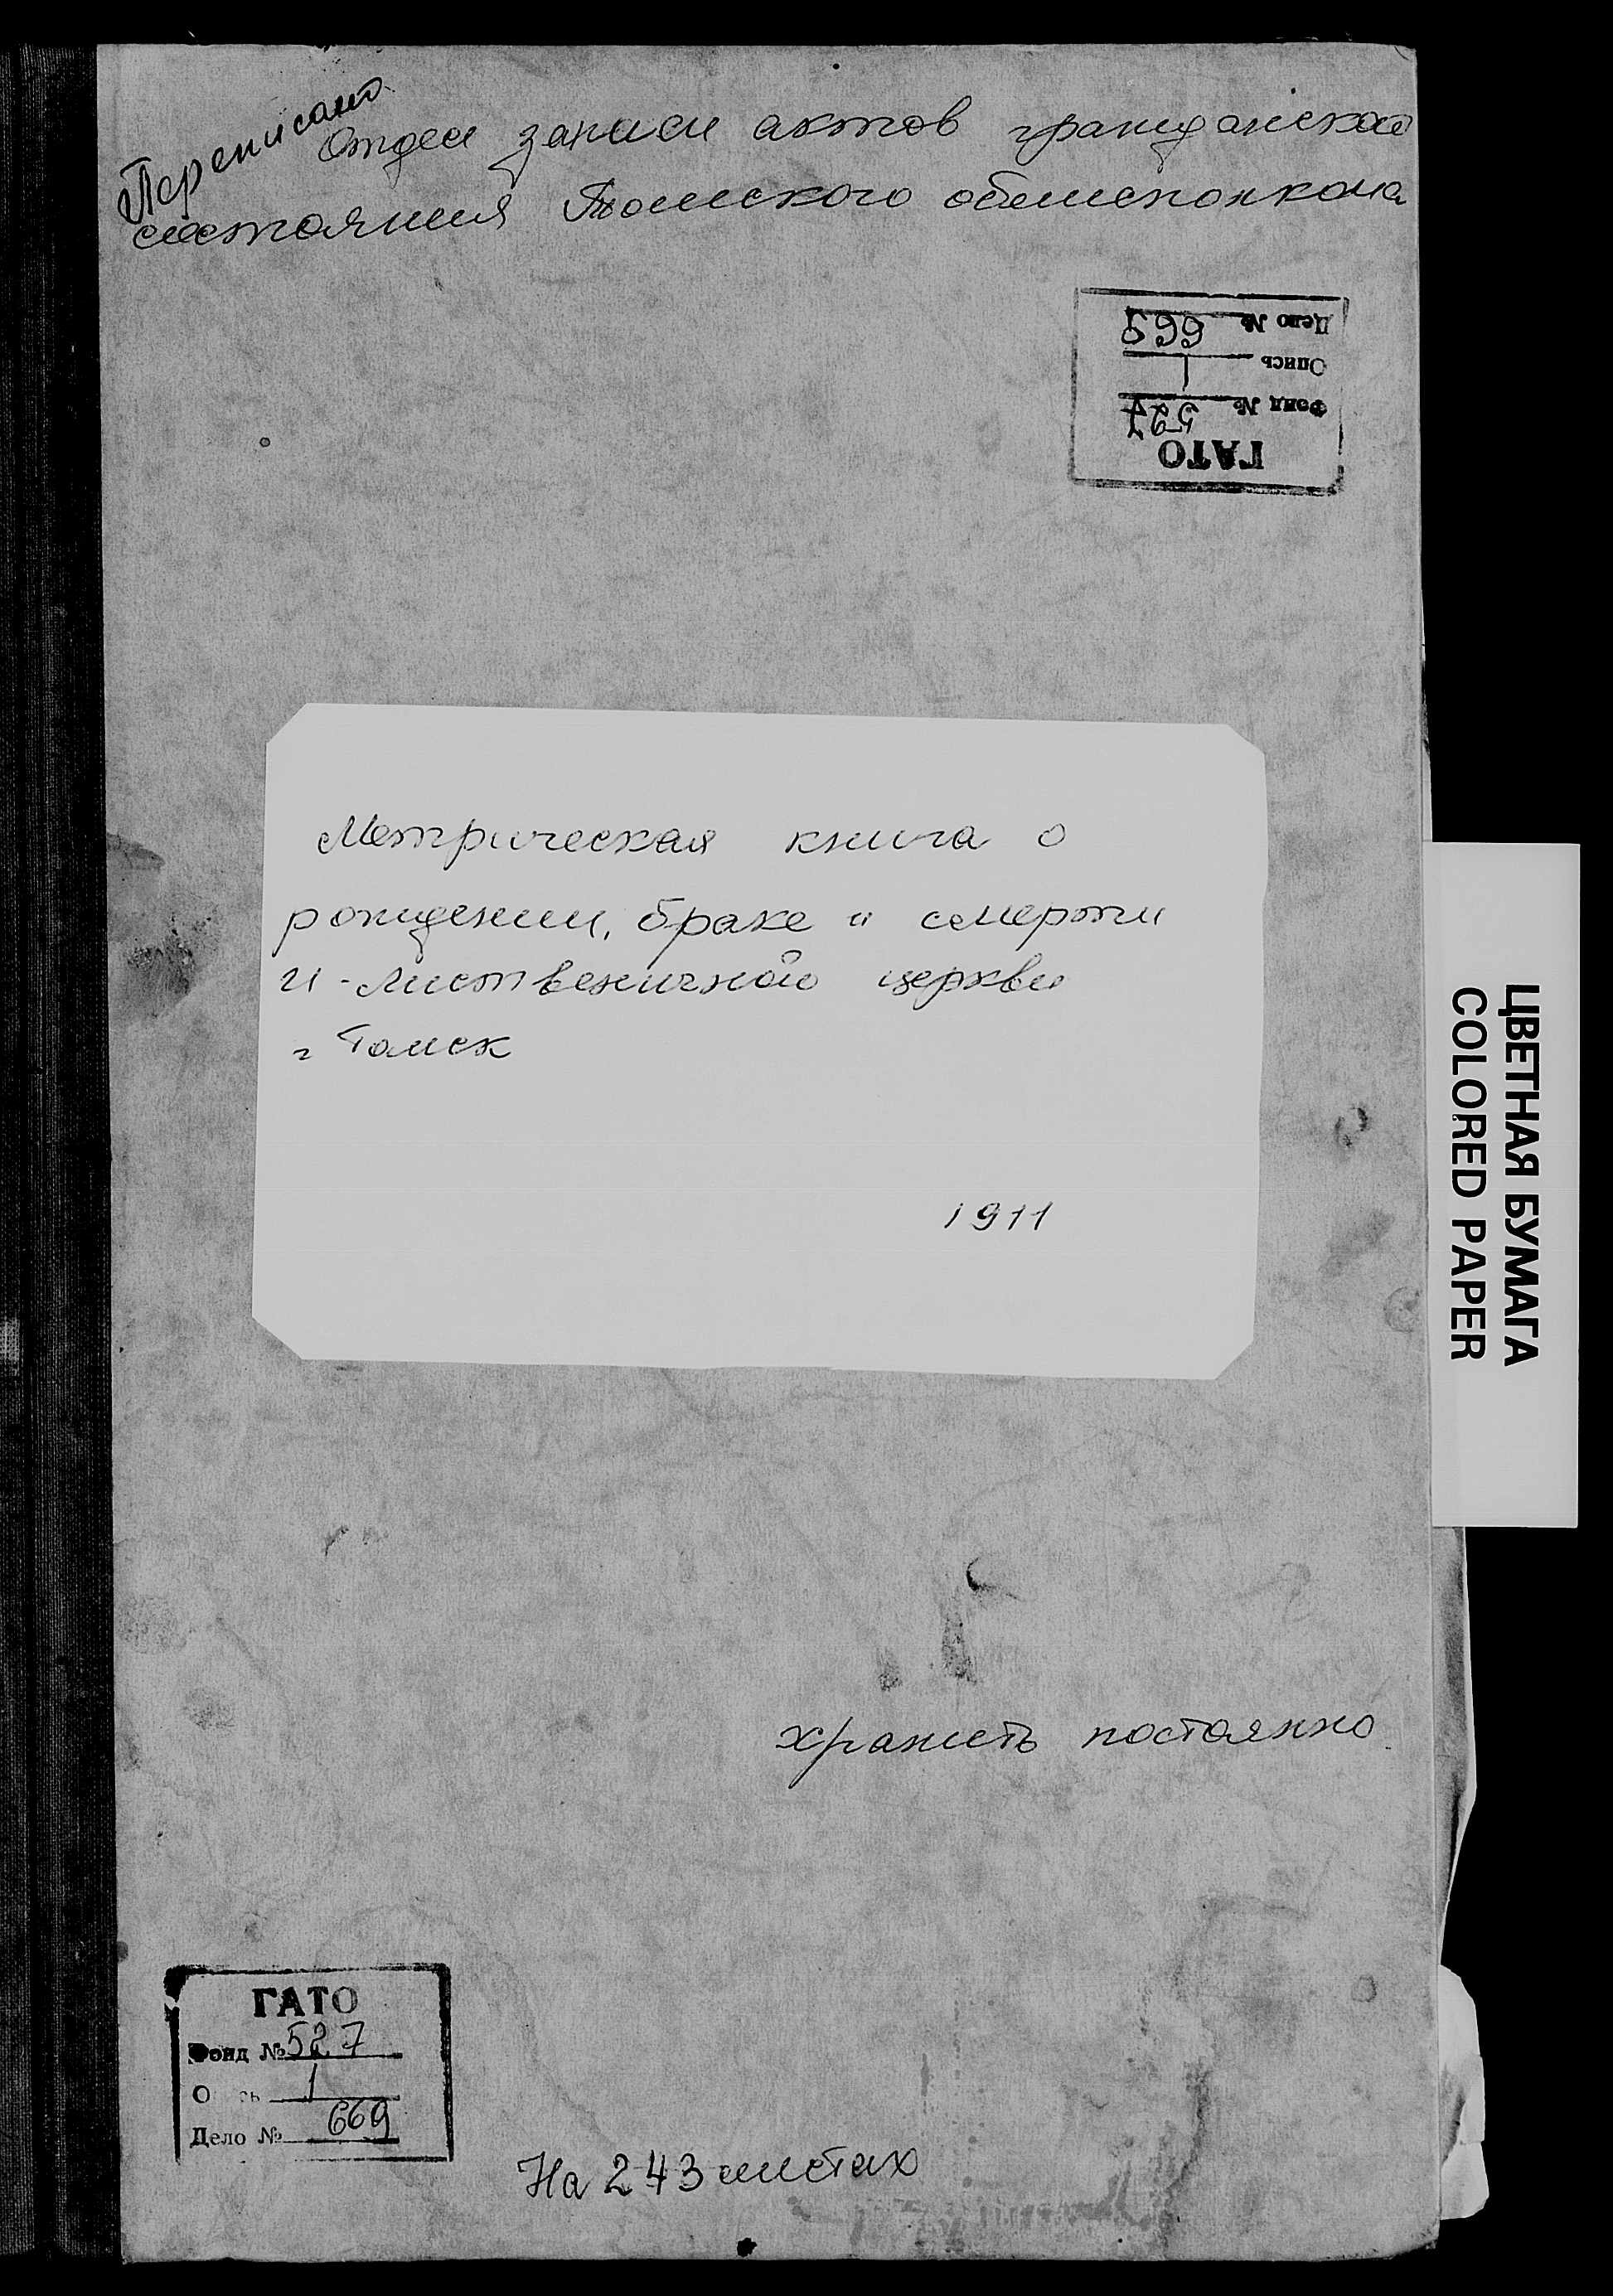 Переписано
Отдел записи актов гражданского
состояния Томского облисполкома
ГАТО
Фонд № 527
Опись 1
Дело № 669
Метрическая книга о
рождении, браке и смерти
И-Лиственичной церкви
г Томск
1911
ЦВЕТНАЯ БУМАГА
COLORED PAPER
хранить постоянно
ГАТО
Фонд № 527
О сь 1
Дело № 669
На 243 листах